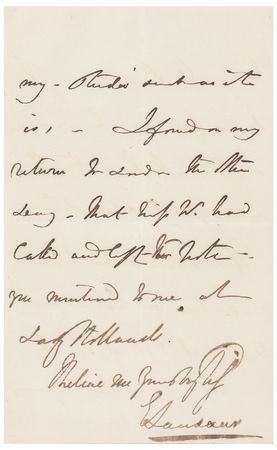 my - studio such as it
is, - I found on my
return to London the other
day - that Miss W. had
called and left the note -
you mentioned to me at
Lady Hollands.
Believe me yours truly
E Landseer